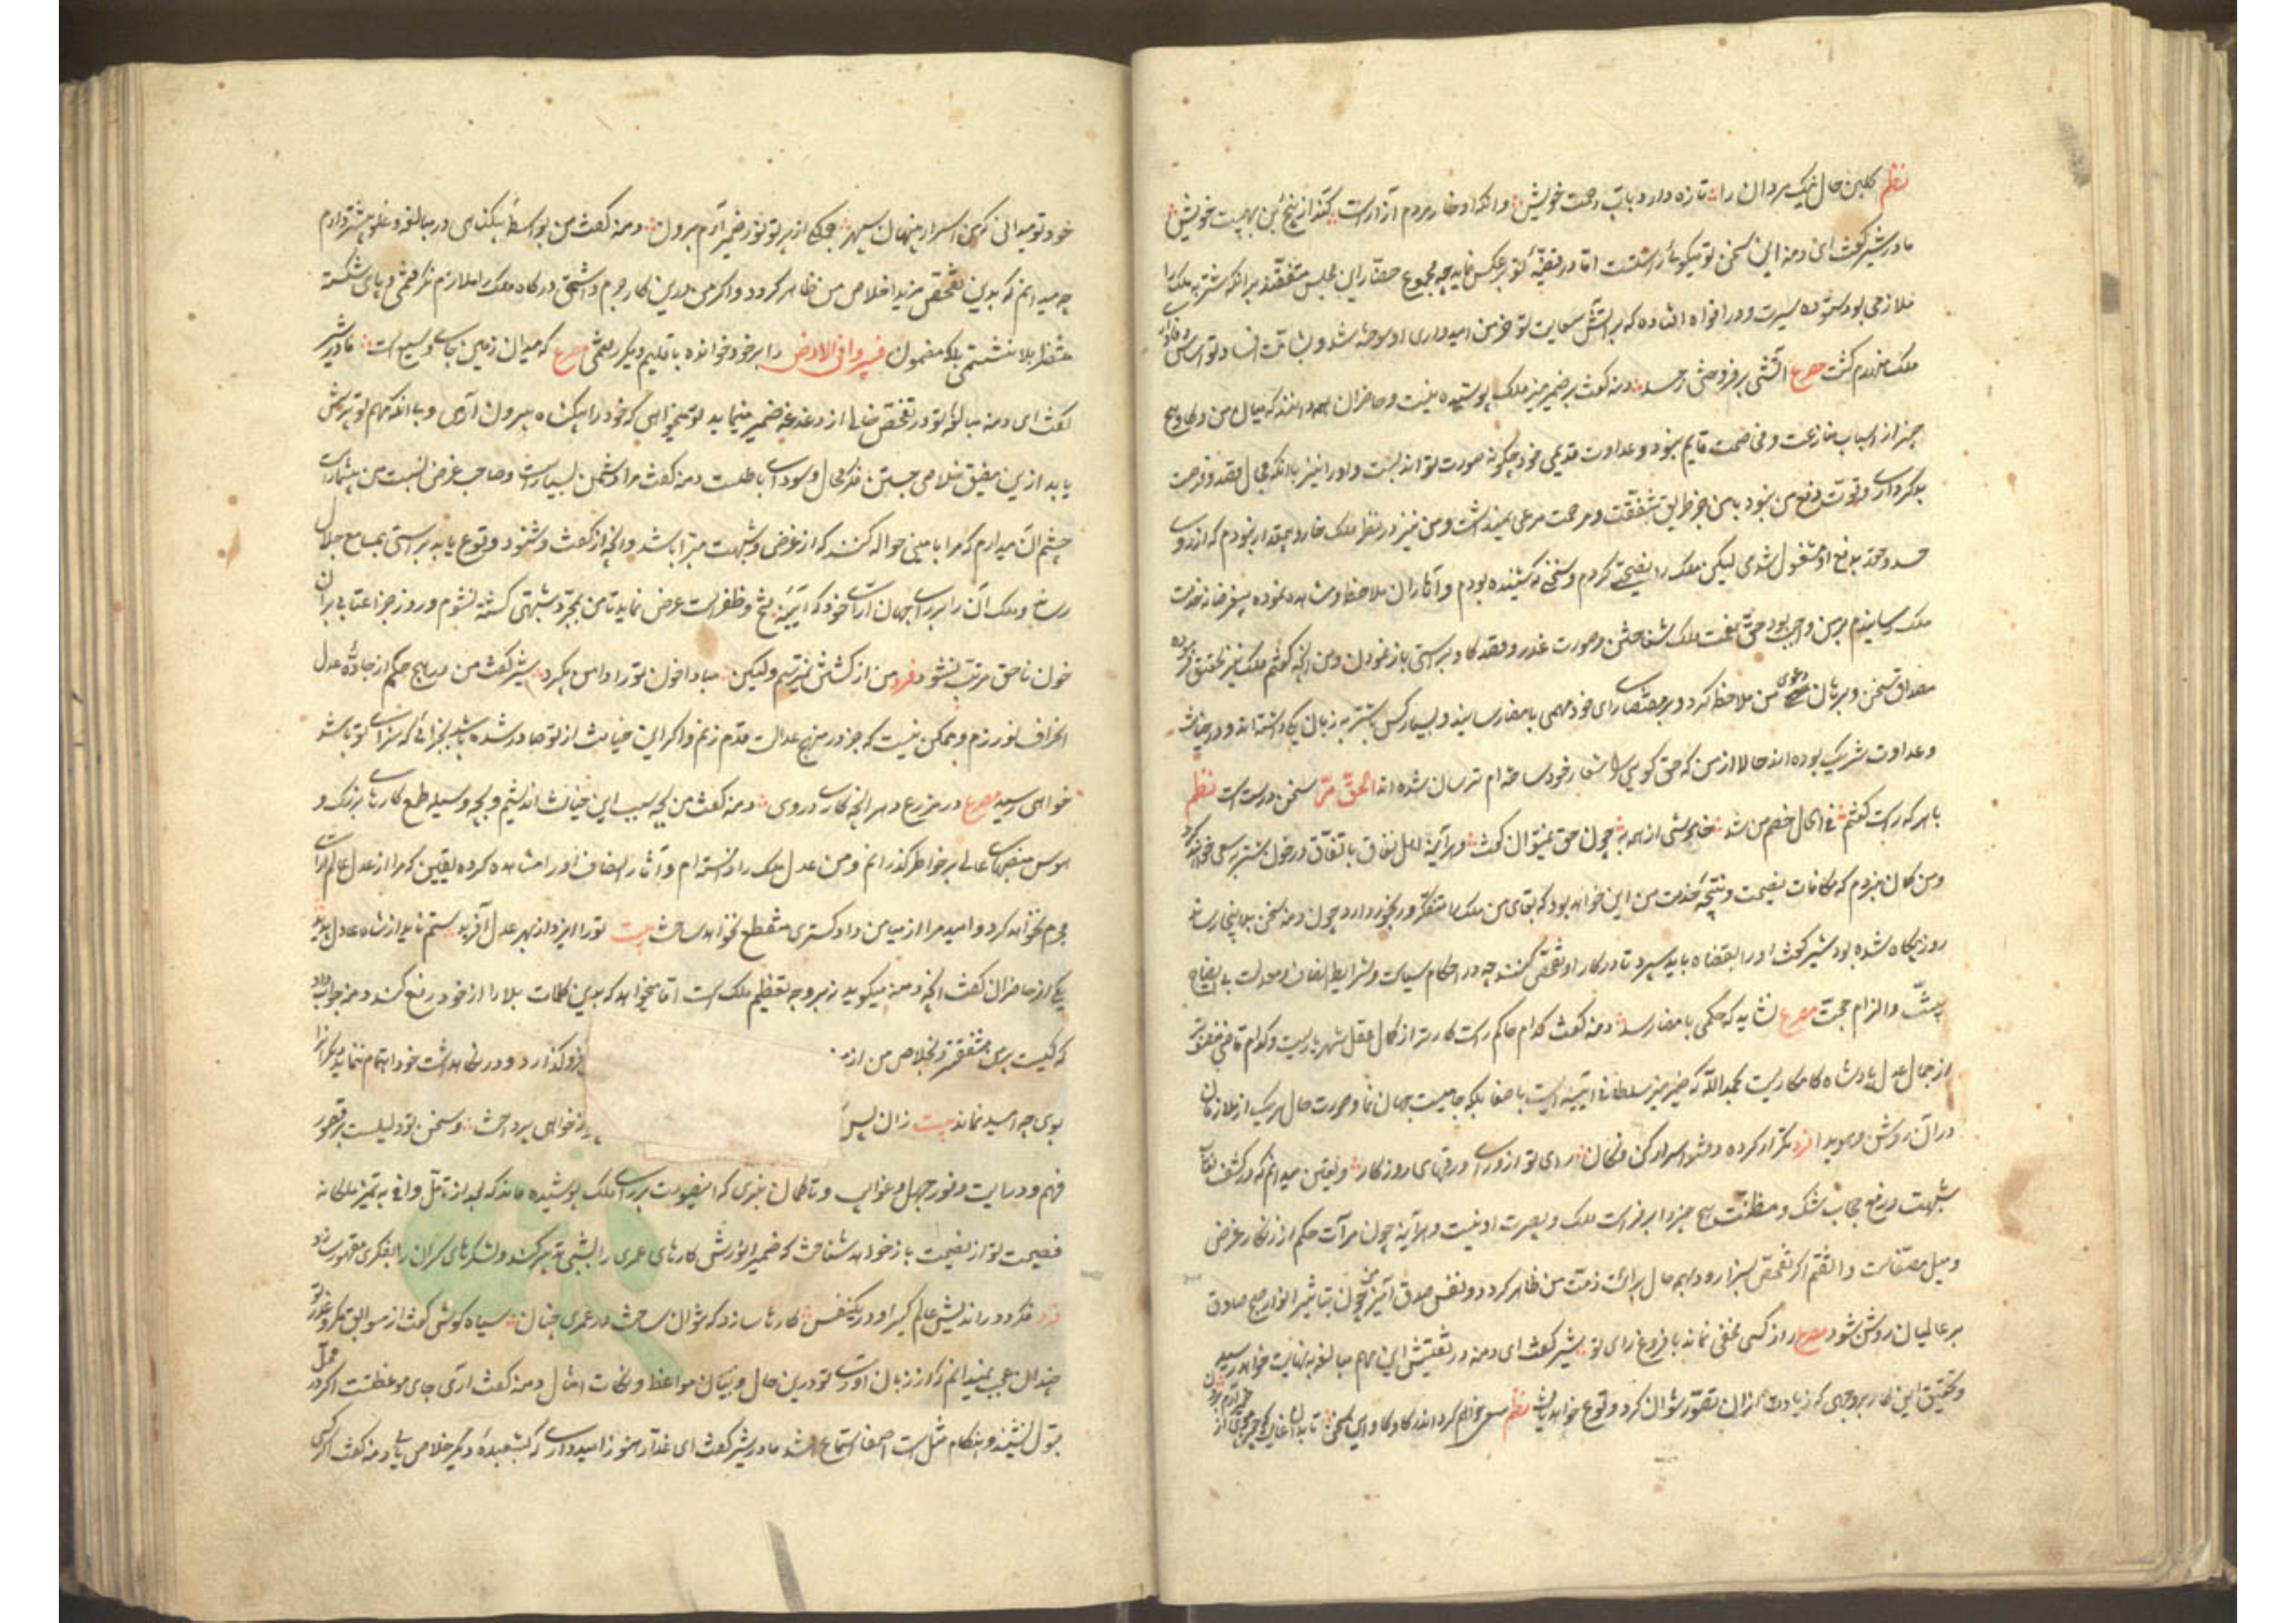 نظم گلبن حال نیک مردان را تازه دارد بآب رحمت خویش وانکه او خار مردم آزارست کند از بیخ و بن بهیبت خویش
مادر شیر گفت ای دمنه این سخن تو میگوئی راستست اما در قضیّه تو برعکس نماید چه مجموع حضار این مجلس متفقند برانکه شنزبه ملک را
ملازمی بود ستوده سیرت و در افواه افتاده که بر آتش سعایت تو خرمن امیدواری او سوخته شد و بشآمت افساد تو اساس وفای
ملک منهدم گشت مصرع آتشی برفروختی ز حسد دمنه گفت بر ضمیر منیر ملک پوشیده نیست و حاضران همه دانند که میان من و گاو هیچ
چیز از اسباب منازعت و مخاصمت قایم نبود و عداوت قدیمی خود چگونه صورت تواند بست و او را نیز با آنکه مجال قصد و فرصت
بدکرداری و قوت دفع من بود با من جز طریق شفقت و مرحمت مرعی نمیداشت و من نیز در نظر ملک خار و بیمقدار نبودم که از روی
حسد و حقد بدفع او مشغول شدمی لیکن ملک را نصیحتی کردم و سخنی که شنیده بودم و آثار آن ملاحظه و مشاهده نموده بیغرضانه بخدمت
ملک رسانیدم بر من واجب بود حق نعمت ملک شناختن و صورت غدر و قصد گاو براستی باز نمودن و من آنچه گفتم ملک نیز تحقیق فرموده
مصداق سخن و برهان دعوی من ملاحظه کرد و بر مقتضای رای خود مهمی بامضا رسانید و بسیار کس با شنزبه زبان یکی داشته اند و در خیانت
و عداوت شریک بوده اند حالا از من که حق گویی را شعار خود ساخته ام ترسان شده اند الحقّ مرّ سخن درست است نظم
با هر که راست گفتم فی الحال خصم من شد خاموشی از همه به چون حق نمیتوان گفت و هرآینه اهل نفاق باتفاق در خون من سعی خواهند کرد
و من گمان نبردم که مکافات نصیحت و نتیجه خدمت من این خواهد بود که بقای من ملک را متفکر و رنجور دارد چون دمنه سخن بدینجا رسانید
روز بیگاه شده بود شیر گفت او را بقضاة باید سپرد تا در کار او تفحص کنند چه در احکام سیاست و شرایط انصاف و معدلت بی ایضاح
بیّنت و الزام حجت مصرع نشاید که حکمی بامضا رسد دمنه گفت کدام حاکم راست کارتر از کمال عقل شهریاریست و کدام قاضی منصف تر
از جمال عدل پادشاه کامکاریست بحمدالله که ضمیر منیر سلطانی آئینه ایست با صفا بلکه جامیست جهان نما و صورت حال هر یک از ملازمان
در آن روشن و هویدا فرد تکرار کرده دفتر اسرار کن فکان رای تو از ورای ورقهای روزگار و یقین میدانم که در کشف نقاب
شبهت و رفع حجاب شک و مظنّت هیچ چیز برابر فراست ملک و بصیرت او نیست و هرآینه چون مرآت حکم از زنگار غرض
و میل مصفاست واثقم اگر تفحص بسزا رود بهمه حال برائت ذمّت من ظاهر گردد و نفس صدق آمیز من چون تباشیر انوار صبح صادق
بر عالمیان روشن شود مصرع راز کسی مخفی نماند با فروغ رای تو شیر گفت ای دمنه در تفتیش این مهم مبالغه بنهایت خواهد رسید
و تحقیق این کار بر وجهی که زیادت از آن تصور نتوان کرد وقوع خواهد یافت نظم سعی خواهم کرد اندر کاوکاو این سخن
خود تو میدانی که من اسرار پنهان سپهر جمله از پرتو نور ضمیر آرم برون دمنه گفت من بواسطه بیگناهی در مبالغه و غلو بیشتر دارم
چه میدانم که بدین تفحص مزید اخلاص من ظاهر گردد و اگر من درین کار جرم داشتمی درگاه ملک را ملازم نگرفتمی و پای شکسته
منتظر بلا ننشستمی بلکه مضمون فسیروا فی الارض را بر خود خوانده باقلیم دیگر رفتمی مصرع که میدان زمین جای وسیع است مادر شیر
گفت ای دمنه مبالغه تو در تفحص خالی از دغدغه ضمیر نمینماید تو میخواهی که خود را بیگناه بیرون آری و با آنکه مهم تو پرسش
یابد ازین مضیق خلاصی جستن فکر محال و سودای باطلست دمنه گفت مرا دشمن بسیارست و صاحب غرض نسبت من بیشمارست
چشم آن میدارم که مرا بامینی حواله کنند که از غرض و شبهت مبرّا باشد و آنچه از گفت و شنود وقوع یابد براستی بمسامع جلال
رساند و ملک آن را بر رای جهان آرای خود که آئینه فتح و ظفرست عرض نماید تا من بمجرد شبهتی کشته نشوم و روز جزا عتابی بر آن
خون ناحق مرتب نشود فرد من از کشتن نترسم ولیکن مبادا خون تو را دامن بگیرد شیر گفت من در هیچ حکم از جاده عدل
انحراف نورزم و ممکن نیست که جز در منهج عدالت قدم زنم و اگر این خیانت از تو صادر شده باشد بجزائی که سزای تو باشد
خواهی رسید مصرع در مزرع دهر آنچه کاری دروی دمنه گفت من بچه سبب این خیانت اندیشم و بچه وسیله طمع کارهای بزرگ و
هوس منصبهای عالی بر خاطر گذرانم و من عدل ملک را دانسته ام و آثار انصاف او را مشاهده کرده یقین که مرا از عدل عالم آرای
محروم نخواهد کرد و امید مرا از میامن دادگستری منقطع نخواهد ساخت بیت تو را ایزد از بهر عدل آفرید ستم ناید از شاه عادل پدید
یکی از حاضران گفت آنچه دمنه میگوید نه بر وجه تعظیم ملک است اما میخواهد که بدین کلمات بلا را از خود دفع کند دمنه جواب داد
که کیست بر من مشفق تر و بخلاص من از من فروگذارد و در نگاهداشت خود اهتمام ننماید دیگران را
بوی چه امید نماند بیت زان پس ز خواهی پرداخت و سخن تو دلیلست بر قصور
فهم و درایت و وفور جهل و غوایت و تا گمان نبری که این صورت بر رای ملک پوشیده ماند که بعد از تامّل وافی به تمیز ملکانه
فضیحت تو از نصیحت باز خواهد شناخت که ضمیر انورش کارهای عمری را بشبی تدبیر کند و لشکرهای گران را بفکری مقهور سازد
فرد فکر دوراندیش عالم گیر او در یکنفس کارها سازد که نتوان ساخت در عمری چنان سیاه گوش گفت از سوابق مکر و غدر تو
چندان عجب نمیدانم که از زبان آوری تو درین حال و بیان مواعظ و نکات امثال دمنه گفت آری جای موعظتست اگر در محل
قبول نشیند و هنگام مثل است اگر اصغا و استماع افتد مادر شیر گفت ای غدار هنوز امید داری که بشعبده و مکر خلاص یابی دمنه گفت اگر کسی